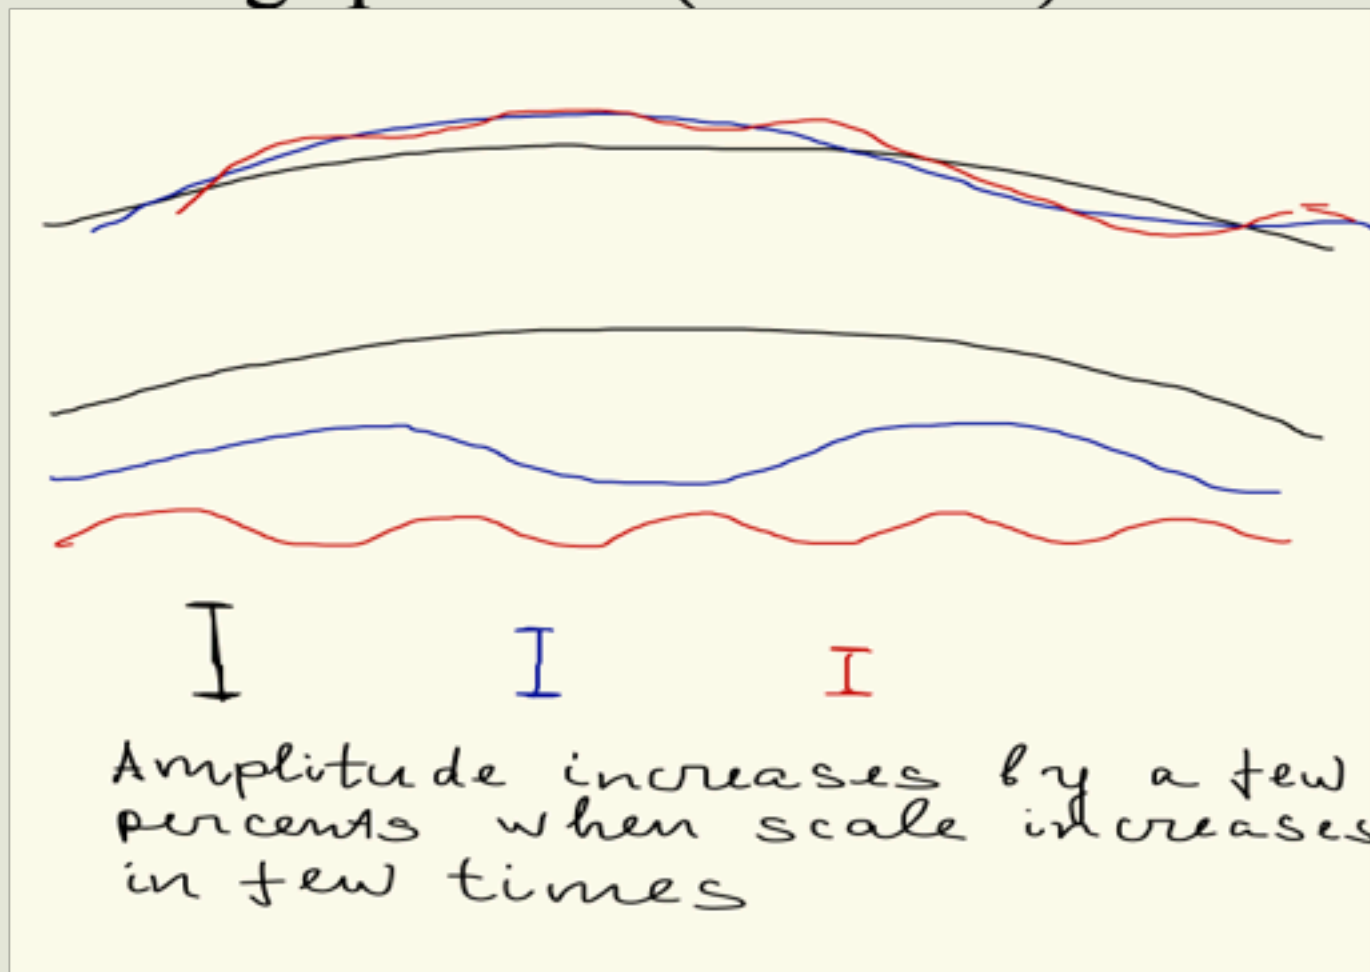 Amplitude increases by a few
percents when scale increases
in few times